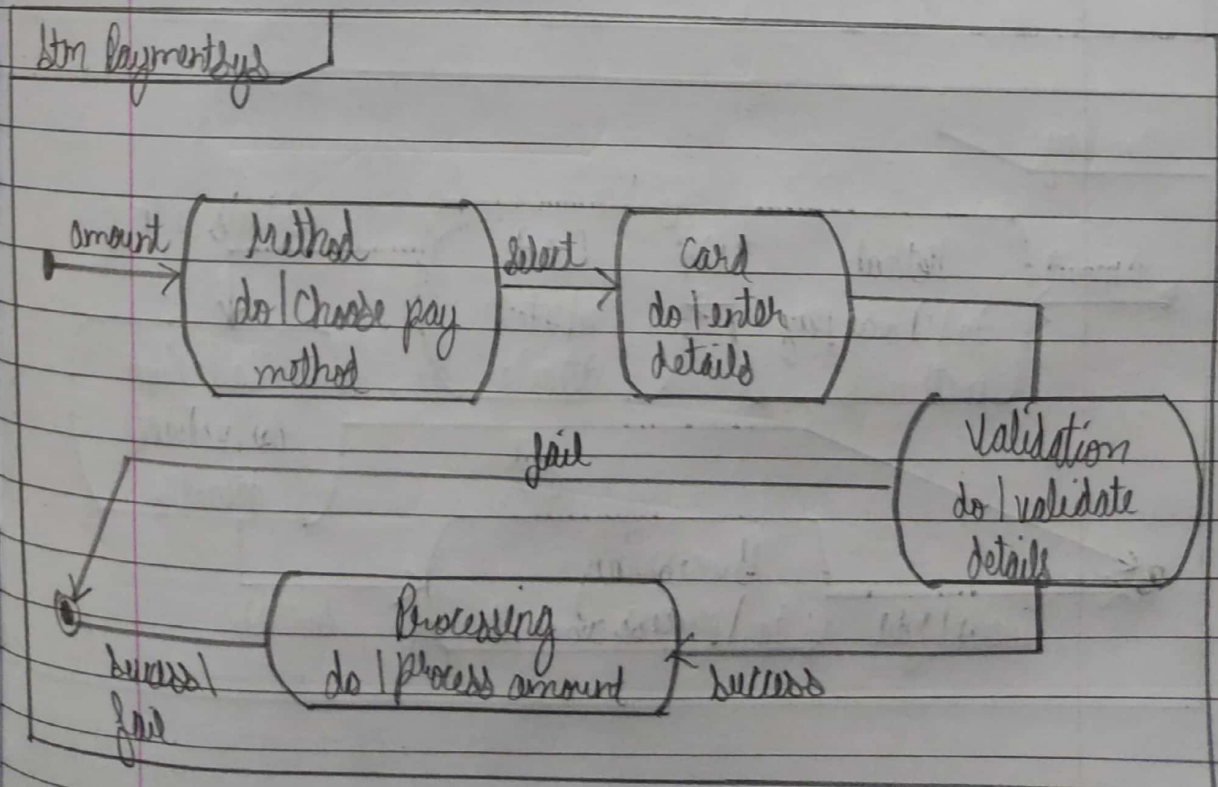 stm Paymentsys
amount
Method
do/Choose pay
method
select
Card
do/enter
details
Validation
do/validate
details
fail
Processing
do/process amount
success
success/
fail